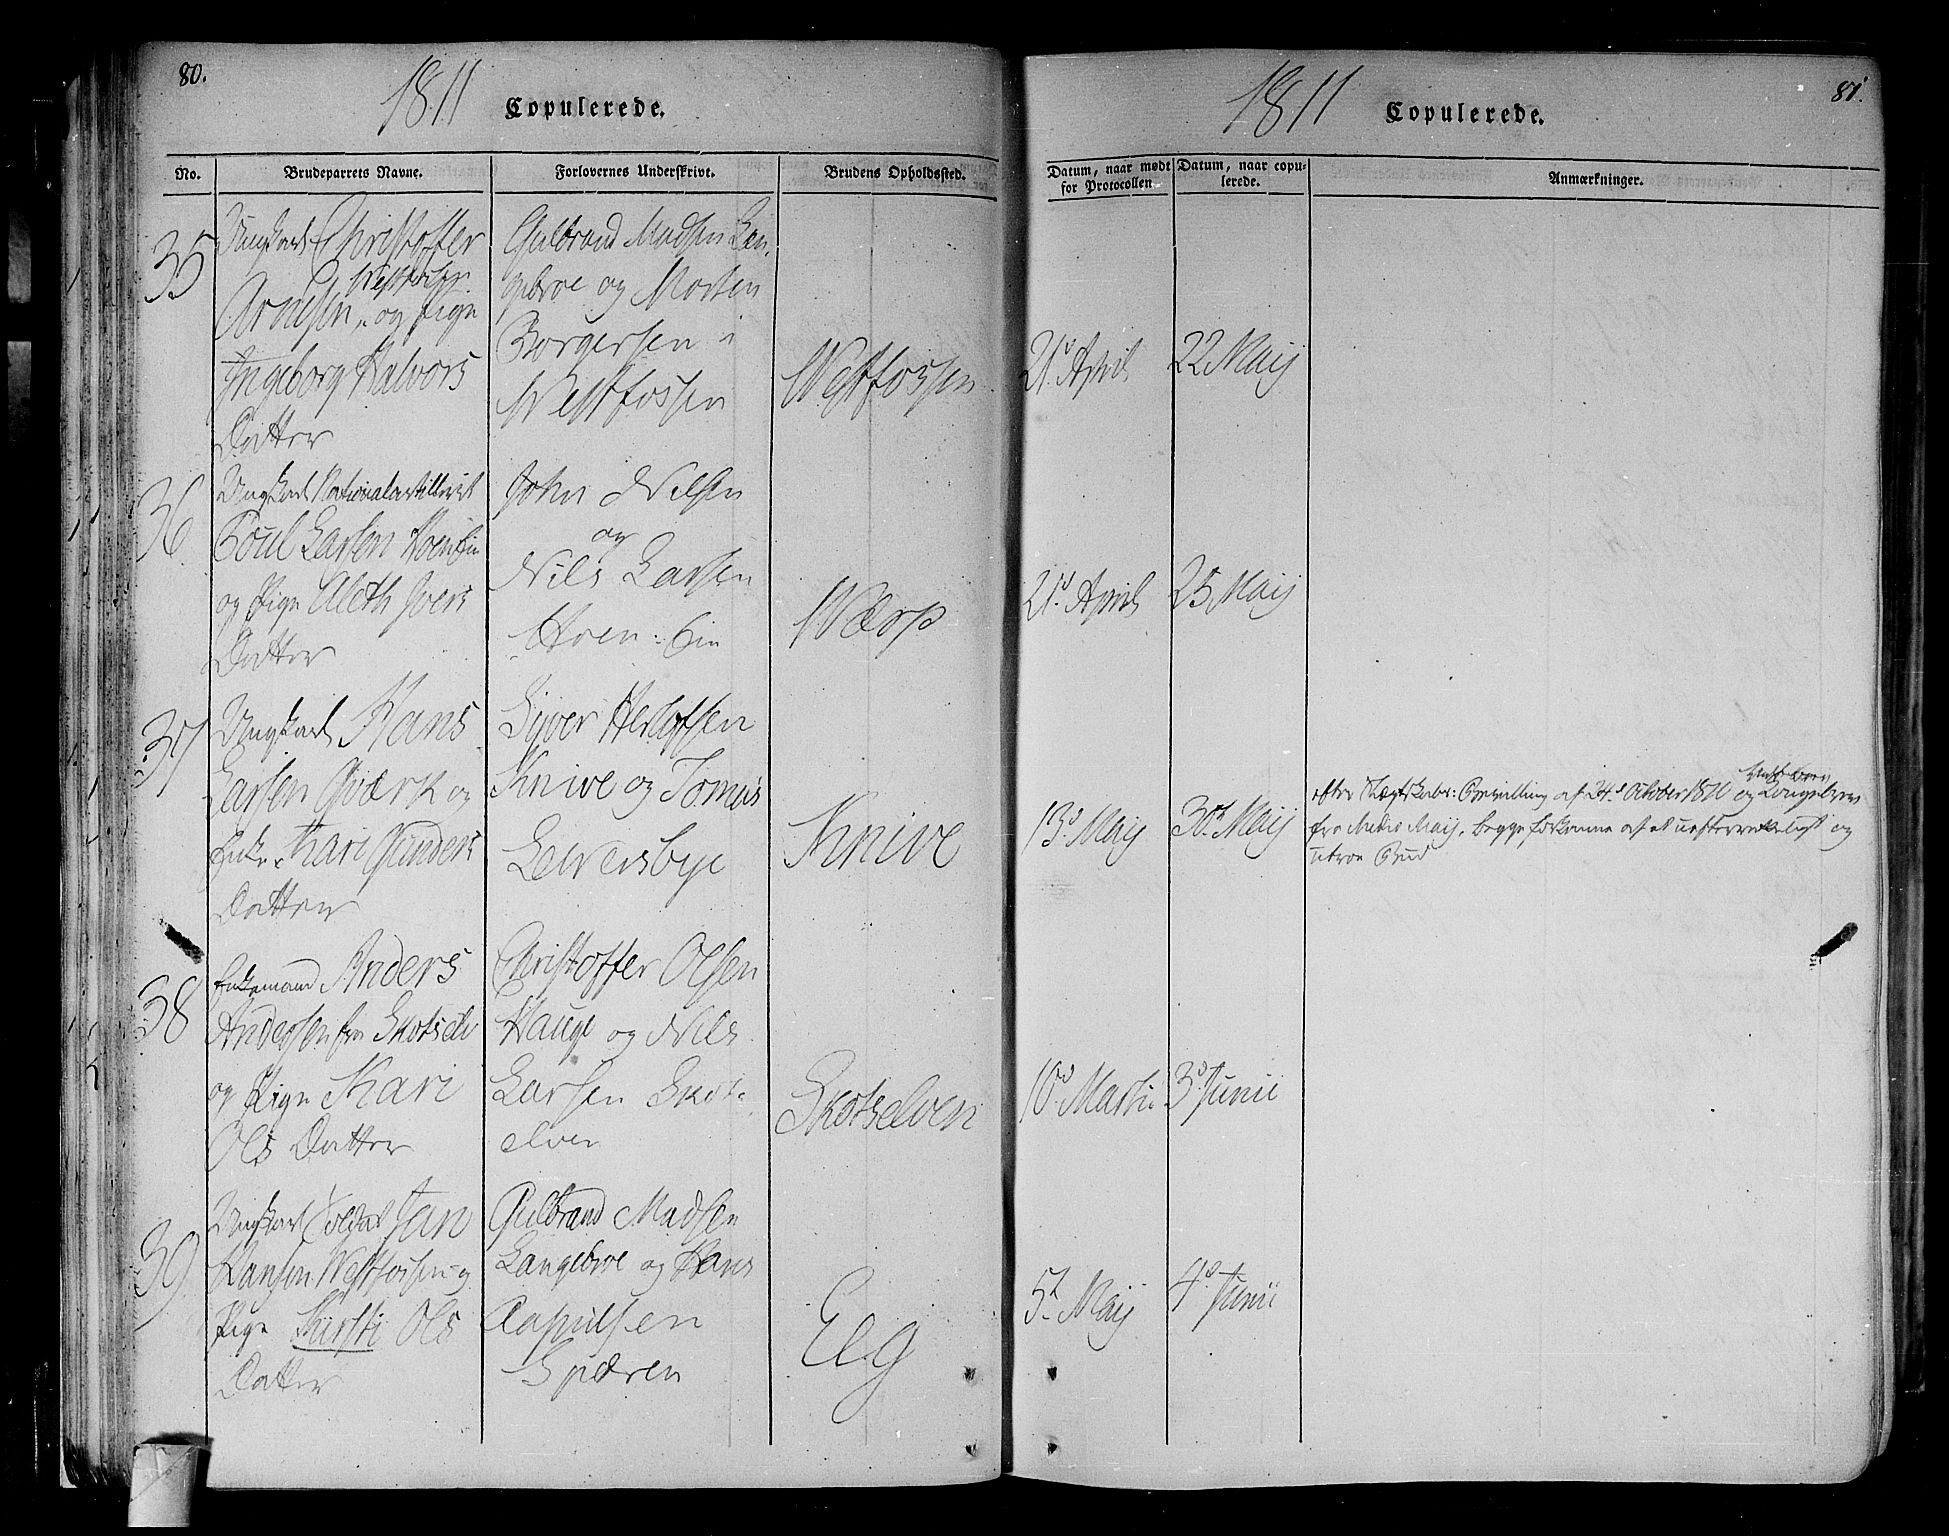 80.
1811
Copulerede.
No.
Brudeparrets Navne.
Forlovernes Underskrivt.
Brudens Opholdssted.
35
Ungkarl Christoffer
Westfossen
Arnesen, og Pige
Ingeborg Halvors
Datter
Gulbrand Madsen Lan,
gebroe og Morten
Borgersen i
Westfossen
Westfossen
36
Ungkarl Nationalartillerist
Poul Larsen Hoen Eie
og Pige Aleth Ivers
Datter
John Nilsen
og
Nils Larsen
Hoen: Eie
Wærp
37
Ungkarl Hans
Larsen Qværk og
Enke Kari Gunders
Datter
Syver Herlofsen
Knive og Tomus
Leiversbye
Knive
38
Enkemand Anders
Andersen fra Skotselv
og Pige Kari
Ols Datter
Christoffer Olsen
Hauge og Nils
Larsen Skots
elven
Skotselven
39
Ungkarl Soldat Jan
Hansen Westfossen og
Pige Kirsti Ols
Datter
Gulbrand Madsen
Langebroe og Hans
Paulsen
Spæren
Elg
1811
Copulerede.
81.
Datum, naar mødt
for Protocollen
Datum, naar copu-
lerede.
Anmærkninger.
21d April
22 Maij
21d April
25 Maij
13d Maij
30t Maij
efter Slægtskabs: Bevilling af 24d October 1810 og Kongebrev
fra Medio Maij, begge forkomne af et uefterretteligt og
utroe Bud
10d Martii
3d Junii
5t Maij
4d Junii